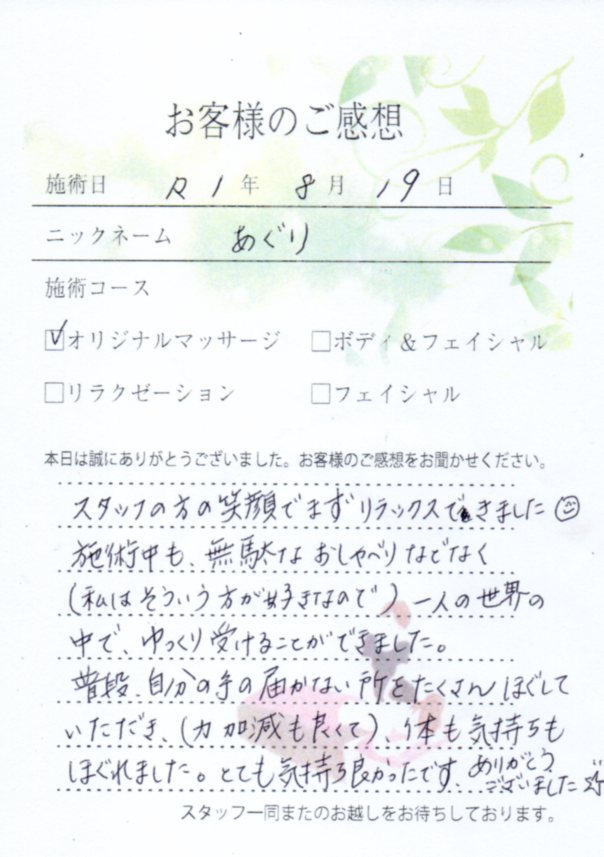 お客様のご感想
施術日 R1年 8月 19日
ニックネーム あぐり
施術コース
☑オリジナルマッサージ □ボディ&フェイシャル
□リラクゼーション □フェイシャル
本日は誠にありがとうございました。お客様のご感想をお聞かせください。
スタッフの方の笑顔でまずリラックスできました☺
施術中も、無駄なおしゃべりなどなく
(私はそういう方が好きなので)一人の世界の
中で、ゆっくり受けることができました。
普段、自分の手の届かない所をたくさんほぐして
いただき、(力加減も良くて)、体も気持ちも
ほぐれました。とても気持ち良かったです、ありがとう
ございました☆
スタッフ一同またのお越しをお待ちしております。